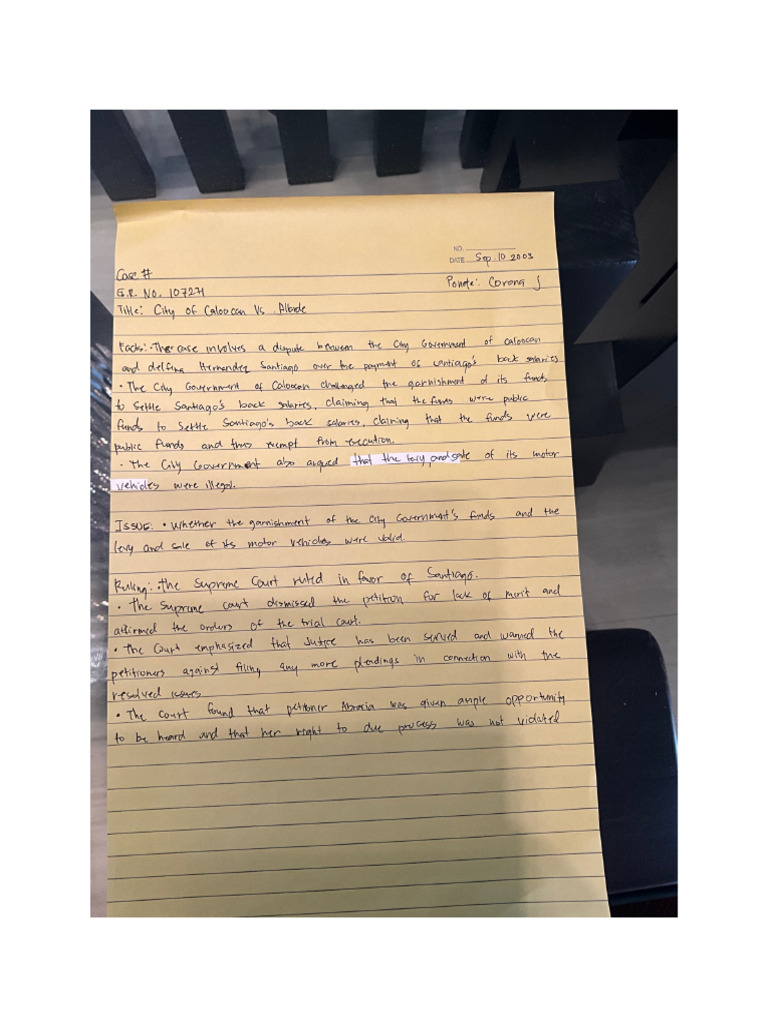 NO.
DATE Sep 10 2003
Case #
G.R. No. 107271
Ponete: Corona J
Title: City of Caloocan Vs. Allarde
Facts: • The case involves a dispute between the City Government of Caloocan
and delfina Hernandez Santiago over the payment of Santiago's back salaries
• The City Government of Caloocan challenged the garnishment of its funds
to settle Santiago's back salaries, claiming that the funds were public
funds to settle Santiago's back salaries, claiming that the funds were
public funds and thus exempt from execution.
• The City Government also argued that the levy and sale of its motor
vehicles were illegal.
Issue: • Whether the garnishment of the City Government's funds and the
levy and sale of its motor vehicles were valid.
Ruling: • The Supreme Court ruled in favor of Santiago.
• The Supreme court dismissed the petition for lack of merit and
affirmed the orders of the trial court.
• The Court emphasized that Justice has been served and warned the
petitioners against filing any more pleadings in connection with the
resolved issues
• The Court found that petitioner Abracia was given ample opportunity
to be heard and that her right to due process was not violated